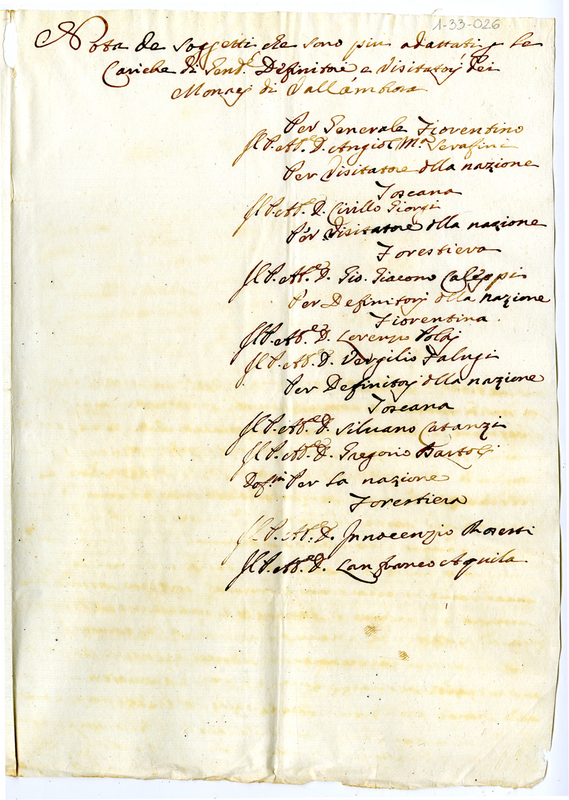 1-33-026
Nota de Soggetti che sono piu adattati p le
Cariche di Genle Definitori e Visitatorj dei
Monacj di Vallambrosa
Per Generale Fiorentino
Il P. Abe D. Angiol Ma Serafini
Per Visitatore della nazione
Toscana
Il P. Abe D. Cirillo Giorgi
Per Visitatore della nazione
Forestiera
Il P. Abe D. Gio. Giacomo
Per Definitorj della nazione
Fiorentina
Il P. Abe D. Lorenzo
Il P. Abe D. Vergilio Falugi
Per Definitorj della nazione
Toscana
Il P. Abe D. Silvano Catanzi
Il P. Abe D. Gregorio Bartoli
Per la nazione
Forestiera
Il P. Abe D. Innocenzio Rosetti
Il P. Abe D. Lanfranco Aquila